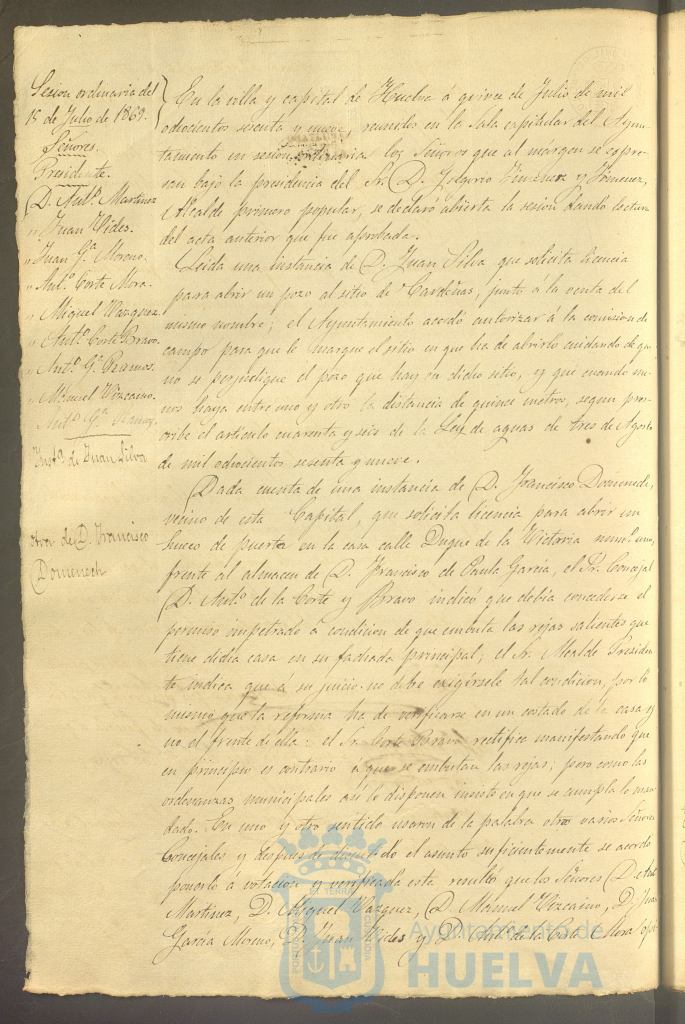 Sesion ordinaria del
15 de Julio de 1869.
Señores.
Presidente.
D. Antº. Martinez
" Juan Vides.
" Juan Gª. Moreno.
" Antº. Corte Mora.
" Miguel Vazquez
" Antº. Corte Bravo.
" Antº. Gª. Ramos.
" Manuel Vizcaino.
Antº. Gª. Ramos.
Instª. de Juan Silva
otra de D. Francisco
Domenech
En la villa y capital de Huelva á quince de Julio de mil
ochocientos sesenta y nueve, reunidos en la sala capitular del Ayun-
tamiento en sesion ordinaria los Señores que al margen se expre-
san bajo la presidencia del Sr. D. Jimenez y Jimenez,
Alcalde primero popular, se declaró abierta la sesion dando lectura
del acta anterior que fue aprobada.
Leida una instancia de D. Juan Silva que solicita licencia
para abrir un pozo al sitio de Cardeñas, junto á la venta del
mismo nombre; el Ayuntamiento acordó autorizar á la comision de
campo para que le marque el sitio en que ha de abrirlo cuidando de que
no se perjudique el pozo que hay en dicho sitio, y que cuando me-
nos haya entre uno y otro la distancia de quince metros, segun pres-
cribe el articulo cuarenta y seis de la Ley de aguas de tres de Agosto
de mil ochocientos sesenta y nueve.
Dada cuenta de una instancia de D. Francisco Domenech,
vecino de esta Capital, que solicita licencia para abrir un
hueco de puerta en la casa calle Duque de la Victoria num.º uno,
frente al almacen de D. Francisco de Paula Garcia, el Sr. Concejal
D. Antº. de la Corte y Bravo indicó que debia concederse el
permiso impetrado á condicion de que embuta las rejas salientes que
tiene dicha casa en su fachada principal; el Sr. Alcalde Presiden-
te indica que á su juicio no debe exigirsele tal condicion, por lo
mismo que la reforma ha de verificarse en un costado de la casa y
no el frente de ella: el Sr. Corte Bravo rectifica manifestando que
en principio es contrario á que se embutan las rejas; pero como las
ordenanzas municipales asi lo disponen insiste en que se cumpla lo man-
dado. En uno y otro sentido usaron de la palabra otros varios Señores
Concejales y despues de discutido el asunto suficientemente se acordó
ponerlo á votacion y verificada esta resultó que los Señores D. Antº.
Martinez, D. Miguel Vazquez, D. Manuel Vizcaino, D. Juan
Garcia Moreno, D. Juan Vides y D. Antº. de la Corte Mora
Ayuntamiento de
HUELVA